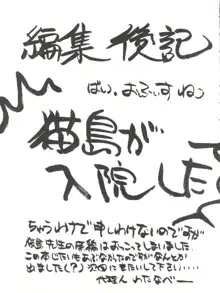 編集後記
ばい、おふぃす ねこ
猫島が
入院した
ちゅうわけで申しわけないのですが
猫島先生の原稿はおっこってしまいました
この本じたいもあぶなかったのですがなんとか
出ました(?)次回に期待して下さい……
代理人 わたなべー